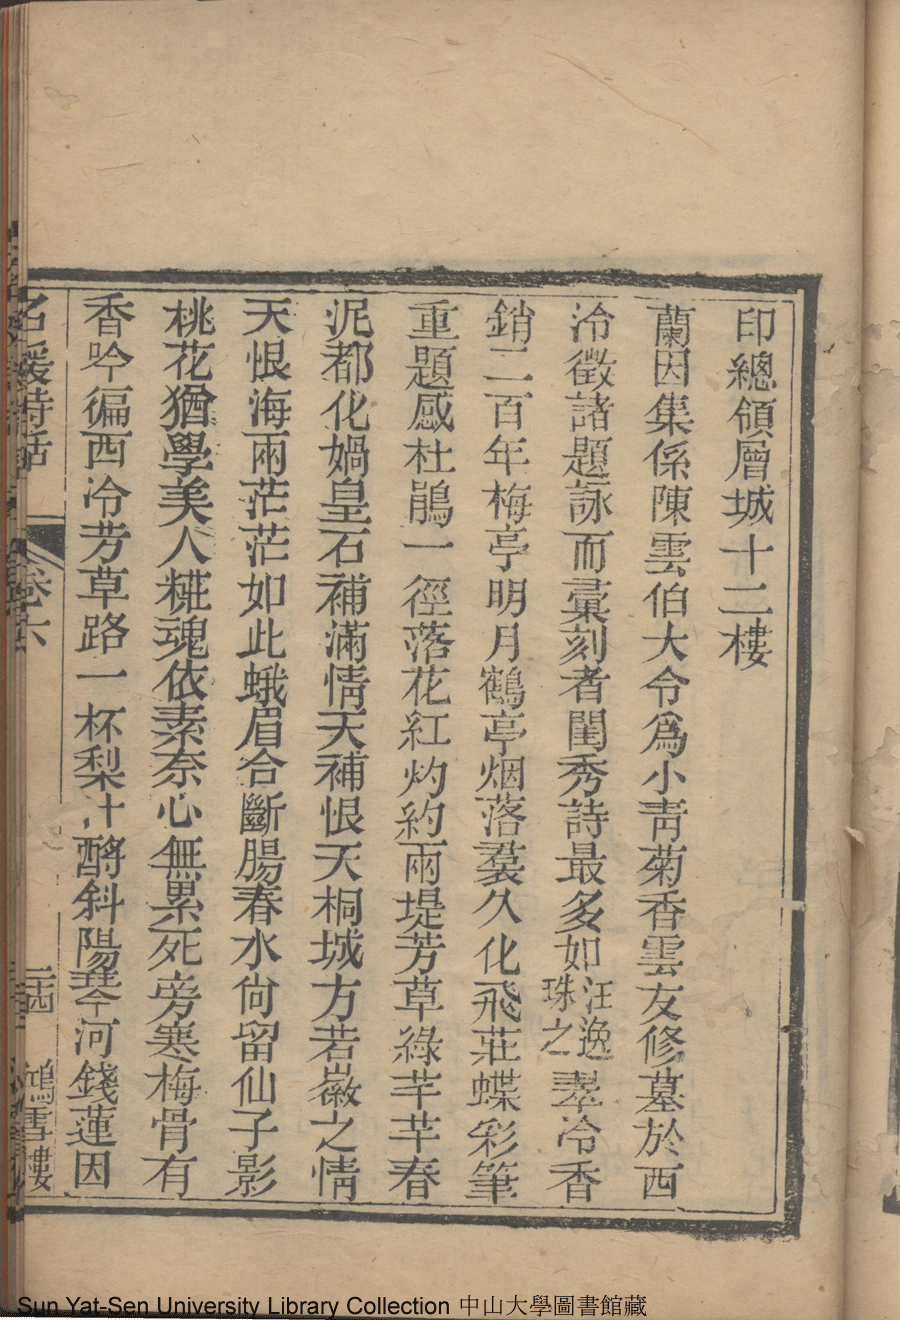 印總領層城十二樓
蘭因集係陳雲伯大令爲小靑菊香雲友修墓於西
泠徵諸題詠而彙刻者閨秀詩最多如汪逸珠之翠冷香
銷二百年梅亭明月鶴亭烟落羣久化飛莊蝶彩筆
重題感杜鵑一徑落花紅灼約兩堤芳草綠芊芊春
泥都化媧皇石補滿情天補恨天桐城方若徽之情
天恨海兩茫茫如此蛾眉合斷腸春水尙留仙子影
桃花猶學美人糚魂依素奈心無累死旁寒梅骨有
香吟徧西泠芳草路一杯梨汁酹斜陽琴河錢蓮因
名媛詩話
卷六
二十四
鴻雪樓
Sun Yat-Sen University Library Collection 中山大學圖書館藏